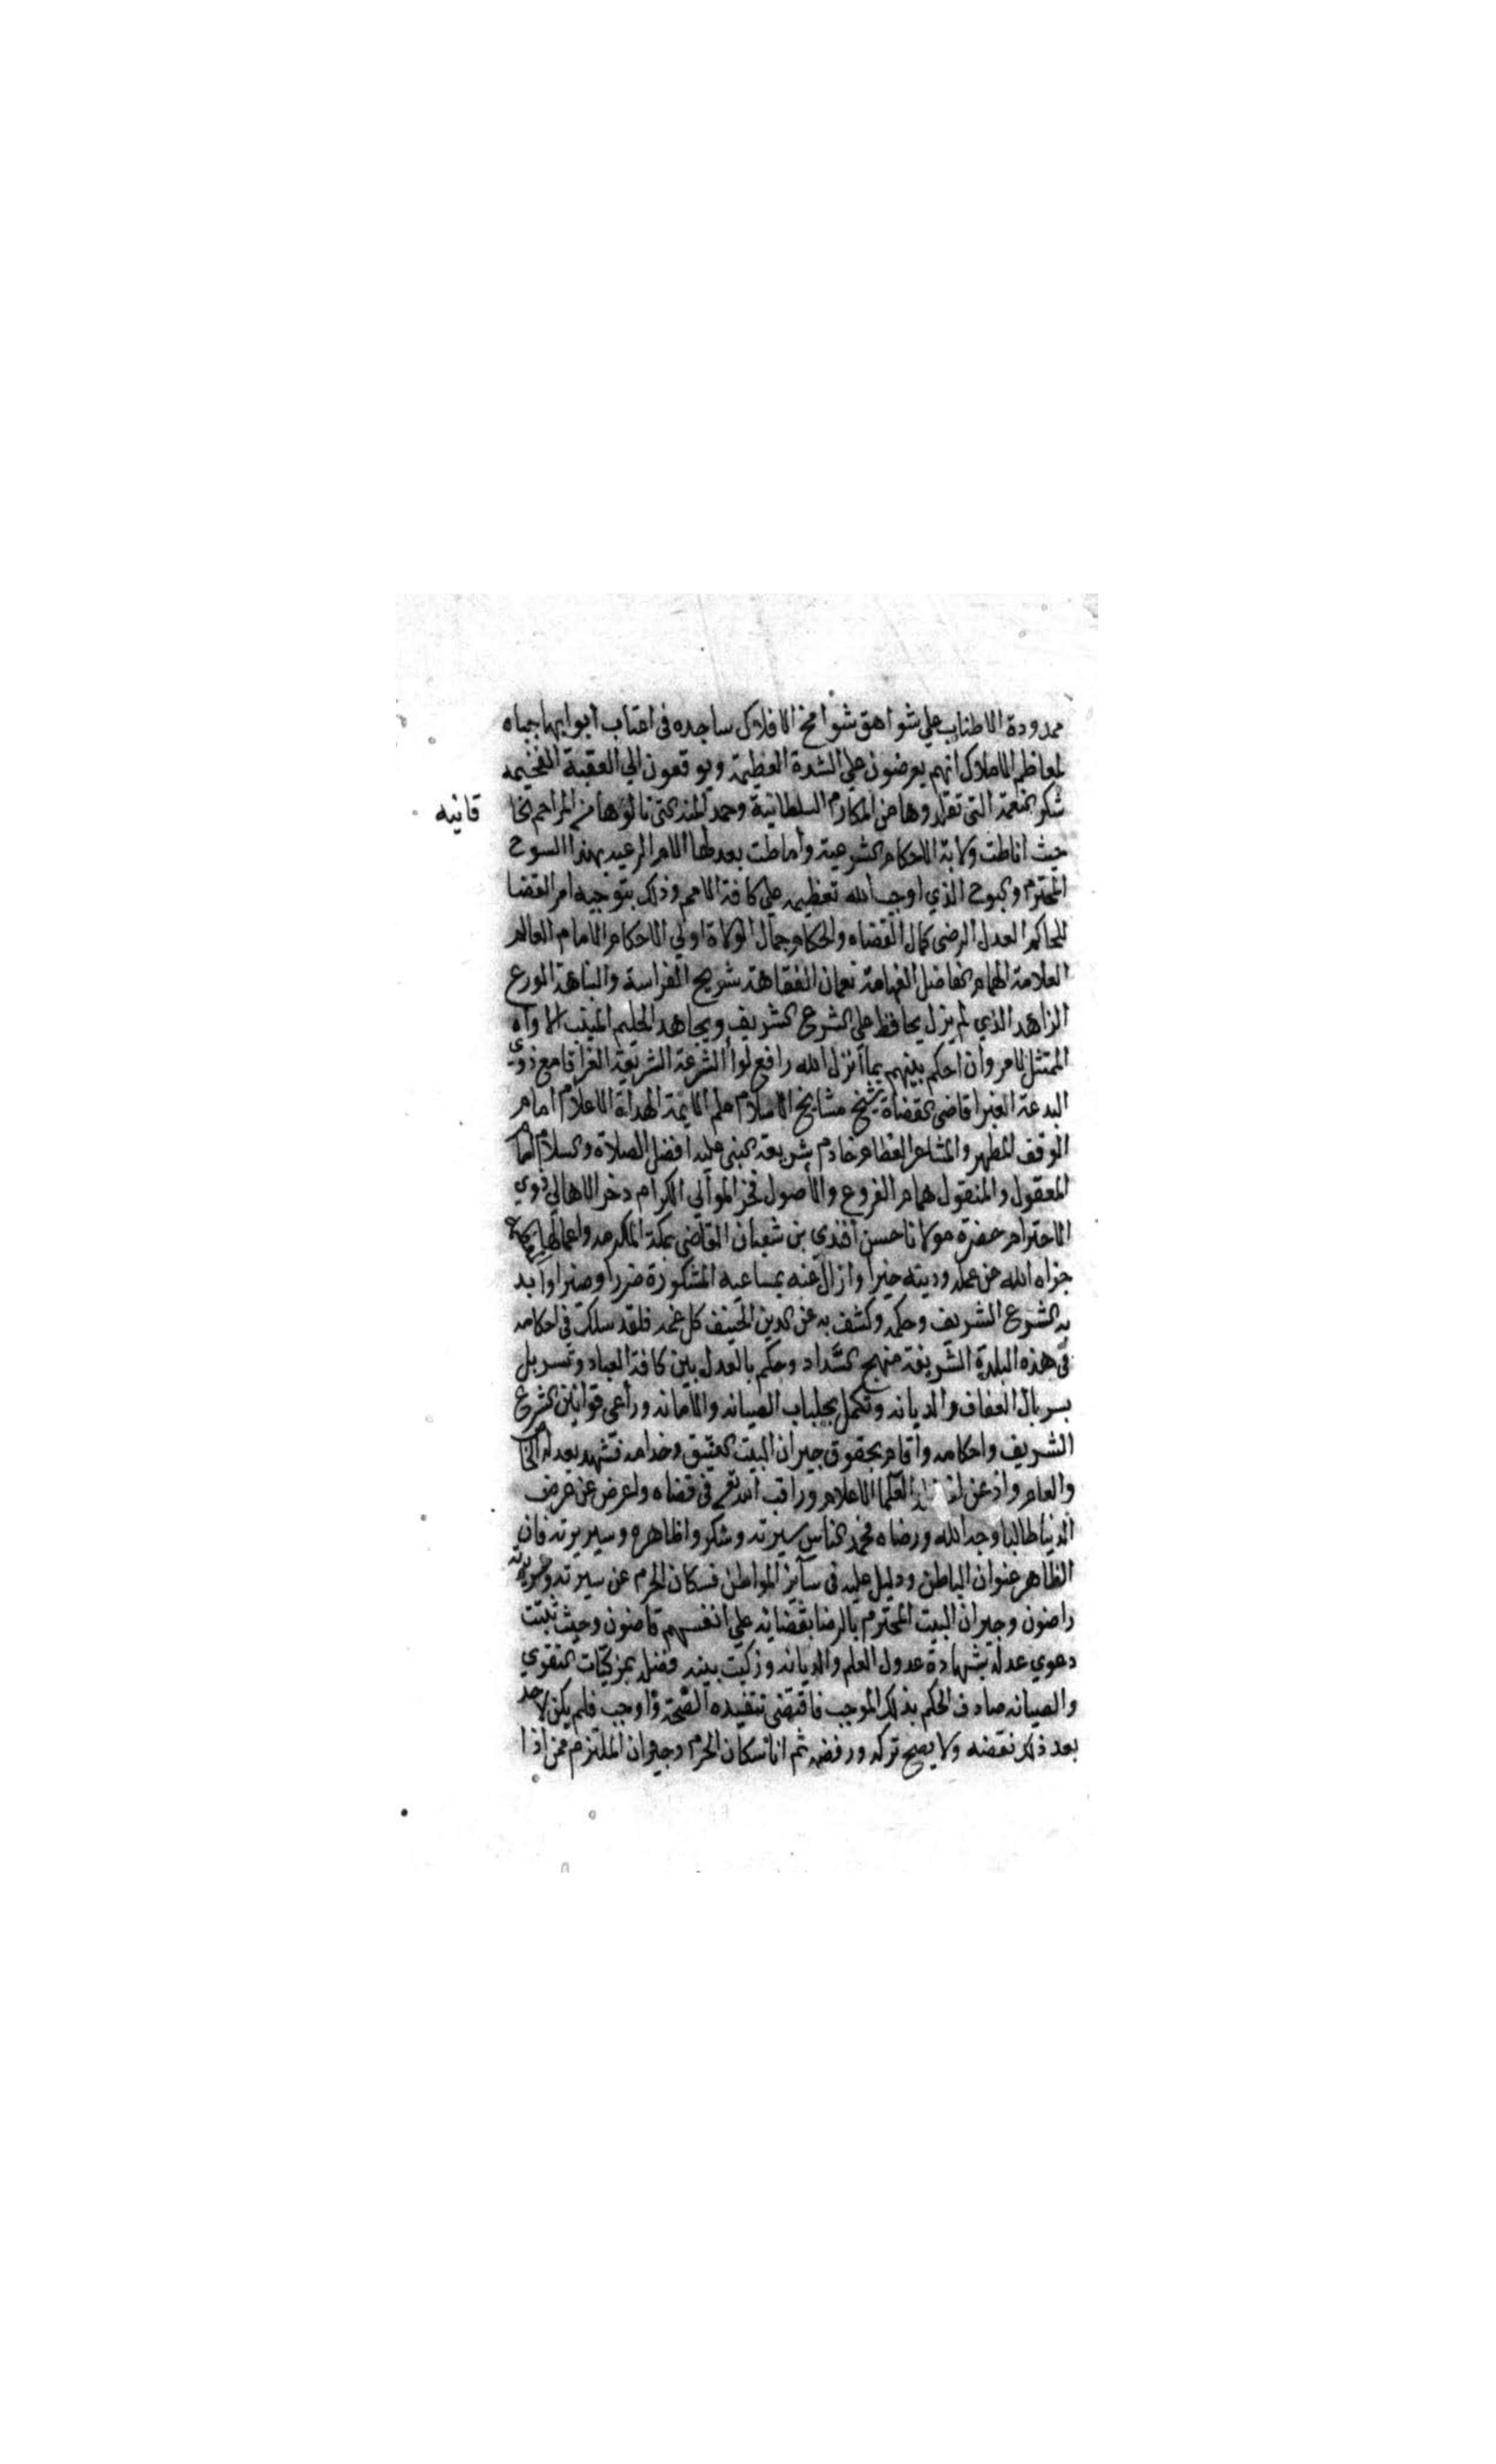 ممدودة الاطناب علي شواهق شوامخ الافلاك ساجده فى اعتاب أبوابها جباه
لمعاظم الاملاك انهم يعرضون علي السدة العظيمة ويوقعون الي العقبة الفخيمه
شكر النعمة التى تقلدوها من المكارم السلطانية وحمد المنة التى نالوها من المراحم الخا
قانيه
حيث اناطت ولاية الاحكام الشرعية وأماطت بعدلها الامر بهذا السوح
المحترم والبوح الذي اوجب الله تعظيمه علي كافة الامم وذلك بتوجيه امر القضا
للحاكم العدل الرضى كمال القضاه والحكام وجمال الولاة اولي الاحكام الامام العالم
العلامة الهمام الفاضل الفهامة نعمان الفقاهة شريح الفراسة والنباهة الورع
الزاهد الذي لم يزل يحافظ علي الشرع الشريف ويجاهد الحليم المنيب الاواه
الممتثل لامر وأن احكم بينهم بما أنزل الله رافع لوا الشرعة الشريفة الغرا قامع ذوي
البدعة الغبرا قاضى القضاة شيخ مشايخ الاسلام علم الايمة الهداة الاعلام امام
الموقف المطهر والمشاعر العظام خادم شريعة النبى عليه أفضل الصلاة والسلام
المعقول والمنقول همام الفروع والأصول فخر الموالي الكرام دخر الاهالي ذوي
الاحترام حضرة مولانا حسن أفندي بن شعبان القاضى بمكة المكرمه واعمالها
جزاه الله عن عمله ودينه خيرا وازال عنه بمساعيه المشكورة ضررا وضيرا وأيد
به الشرع الشريف وحكمه وكشف به عن الدين الحنيف كل غمه فلقد سلك في احكامه
فى هذه البلدة الشريفة منهج السداد وحكم بالعدل بين كافة العباد وتسربل
بسربال العفاف والديانه وتكمل بجلباب الصيانه والأمانه وراعى قوانين الشرع
الشريف واحكامه وأقام بحقوق جيران البيت العتيق وخدامه فشهد بعدله الخاص
والعام واذعن العلما الاعلام وراقب الله تعالى فى قضاه واعرض عن عرض
الدنيا طالبا وجه الله ورضاه فحمد الناس سيرته وشكروا ظاهره وسريرته فان
الظاهر عنوان الباطن ودليل عليه فى سآئر المواطن فسكان الحرم عن سيرته وسريرته
راضون وجيران البيت المحترم بالرضا بقضايه علي انفسهم قاضون وحيث ثبتت
دعوي عدله بشهادة عدول العلم والديانه وزكيت بينة فضله بمزكيات التقوي
والصيانه صادف الحكم بذلك الموجب فاقتضى تنفيذه الصحة وأوجب فلم يكن لاحد
بعد ذلك نقضه ولا يصح تركه ورفضه ثم انا سكان الحرم وجيران الملتزم ممن اذا